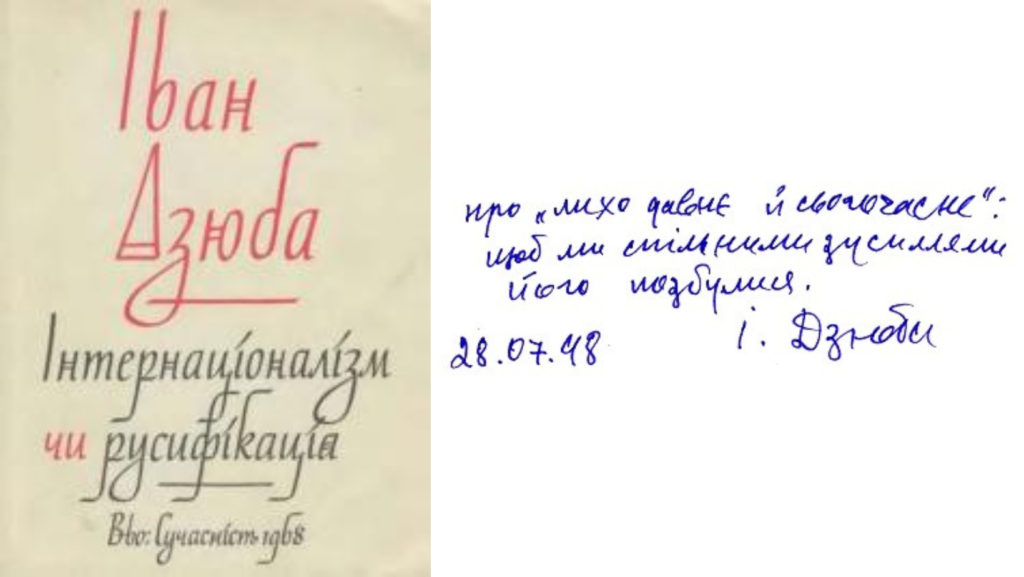 Іван
Дзюба
Інтернаціоналізм
чи русифікація
Вво: Сучасність 1968
про „лихо давнє й сьогочасне“:
щоб ми спільними зусиллями
його позбулися.
28.07.98 І. Дзюба